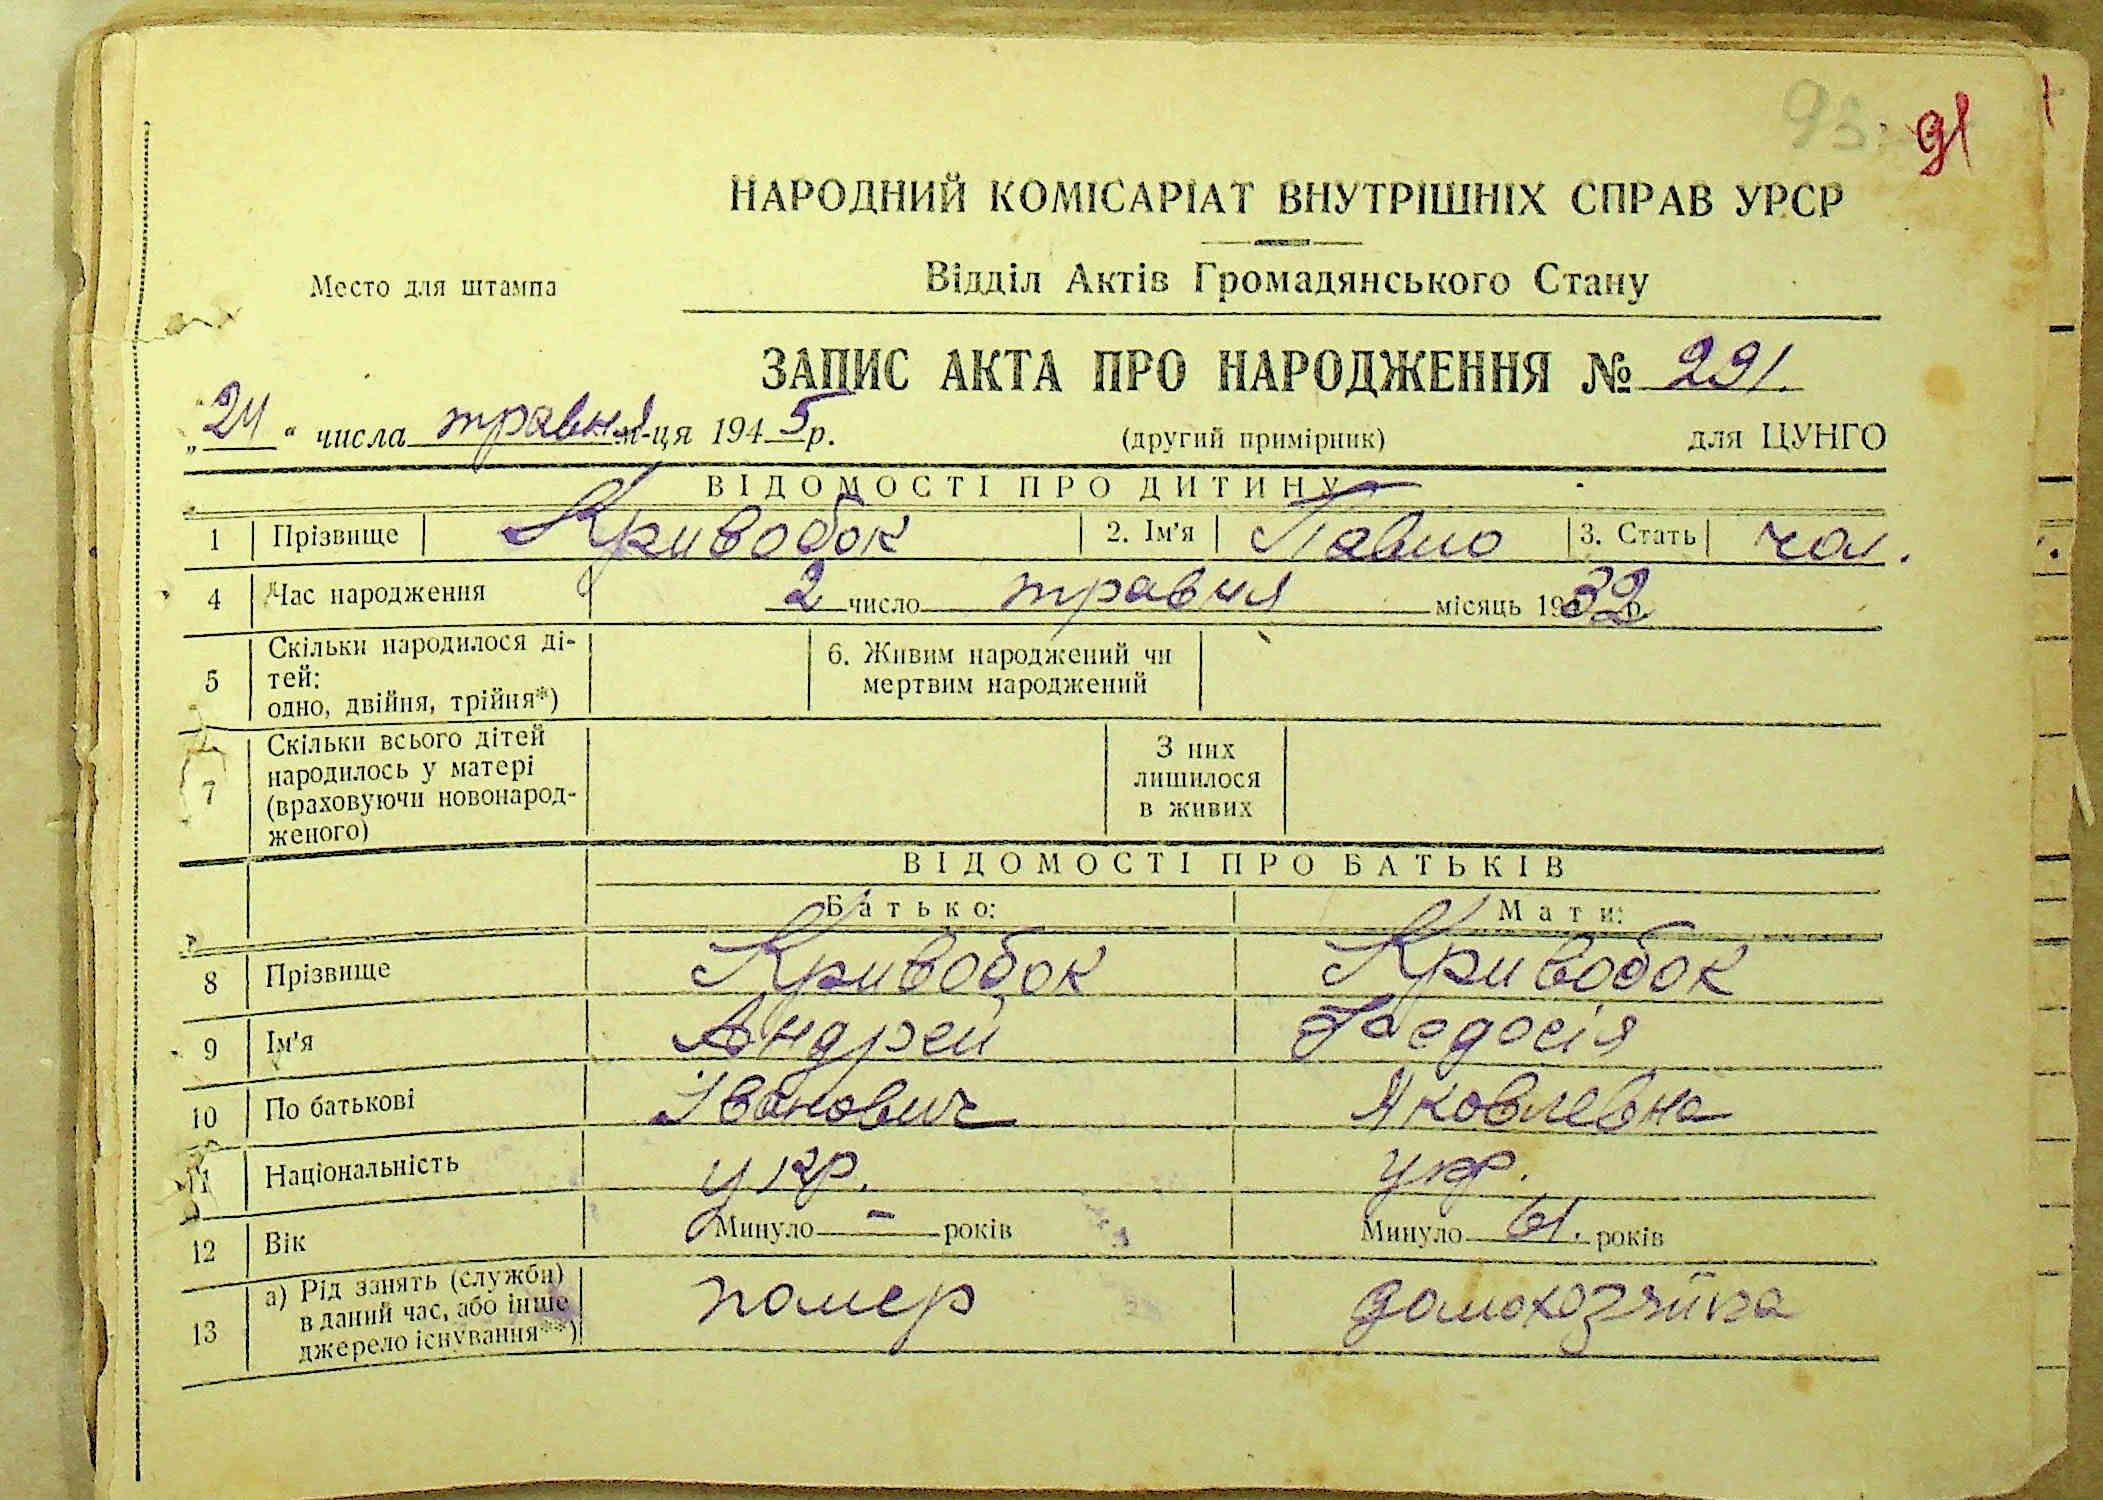 91
НАРОДНИЙ КОМІСАРІАТ ВНУТРІШНІХ СПРАВ УРСР
Место для штампа
Відділ Актів Громадянського Стану
ЗАПИС АКТА ПРО НАРОДЖЕННЯ № 291.
„24" числа травня м-ця 1945 р. (другий примірник) для ЦУНГО
ВІДОМОСТІ ПРО ДИТИНУ
1 Прізвище Кривобок 2. Ім'я Павло 3. Стать чол.
4 Час народження 2 число травня місяць 1932 р.
5 Скільки народилося ді-
тей:
одно, двійня, трійня*)
6. Живим народжений чи
мертвим народжений
7 Скільки всього дітей
народилось у матері
(враховуючи новонарод-
женого)
З них
лишилося
в живих
ВІДОМОСТІ ПРО БАТЬКІВ
Батько: Мати:
8 Прізвище Кривобок Кривобок
9 Ім'я Андрей Феодосія
10 По батькові Іванович Яковлевна
11 Національність укр. укр.
12 Вік Минуло - років Минуло 61. років
13 а) Рід занять (служби)
в даний час, або інше
джерело існування**)
помер домохозяйка